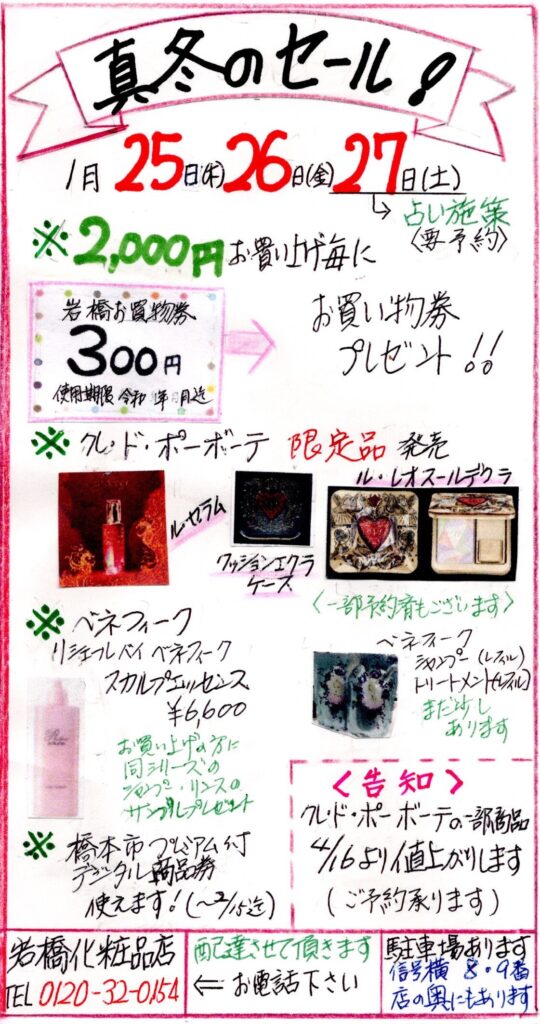 真冬のセール!
1月25日(木)26日(金)27日(土)
占い施策
〈要予約〉
※2,000円お買い上げ毎に
岩橋お買物券
300円
使用期限 令和 年 月迄
お買い物券
プレゼント!!
※クレ・ド・ポーボーテ 限定品 発売
ル・セラム
クッションエクラ
ケース
ル・レオスールデクラ
〈一部予約済もございます〉
※ベネフィーク
リシェールバイ ベネフィーク
スカルプエッセンス
¥6,600
お買い上げの方に
同シリーズの
シャンプー・リンスの
サンプルプレゼント
ベネフィーク
シャンプー(レフィル)
トリートメント(レフィル)
まだ少し
あります
※橋本市プレミアム付
デジタル商品券
使えます!(〜2/15迄)
〈告知〉
クレ・ド・ポーボーテの一部商品
4/16より値上がりします
(ご予約承ります)
岩橋化粧品店
TEL 0120-32-0154
配達させて頂きます
⇐ お電話下さい
駐車場あります
信号横 8・9番
店の奥にもあります